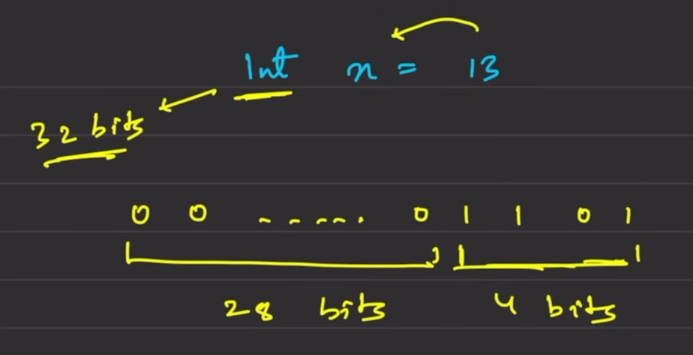 Int n = 13
32 bits
0 0 ----.. 0 1 1 0 1
28 bits 4 bits